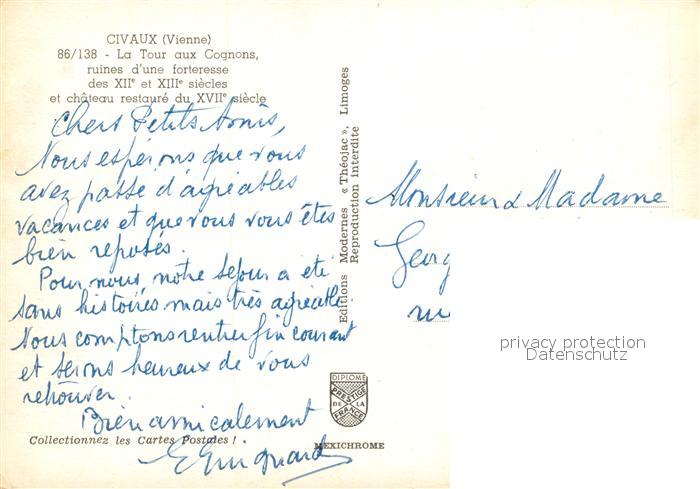 CIVAUX (Vienne)
86/138 - La Tour aux Cognons,
ruines d'une forteresse
des XIIe et XIIIe siècles
et château restauré du XVIIe siècle
Chers Petits Amis,
Nous espérons que vous
avez passé d'agréables
vacances et que vous vous êtes
bien reposés.
Pour nous, notre séjour a été
sans histoires mais très agréable.
Nous comptons rentrer fin courant
et serons heureux de vous
retrouver.
Bien amicalement
Collectionnez les Cartes Postales !
Editions Modernes « Théojac », Limoges
Reproduction Interdite
DIPLOME
PRESTIGE
DE LA
FRANCE
MEXICHROME
Monsieur & Madame
Georg
rue
privacy protection
Datenschutz